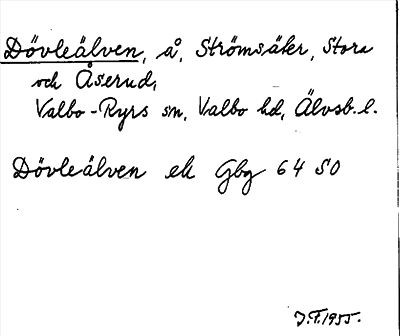 Dövleälven, å, Strömsäker, Stora
och Åserud,
Valbo-Ryrs sn, Valbo hd, Älvsb. l.
Dövleälven ek Gbg 64 SO
J.F. 1955.